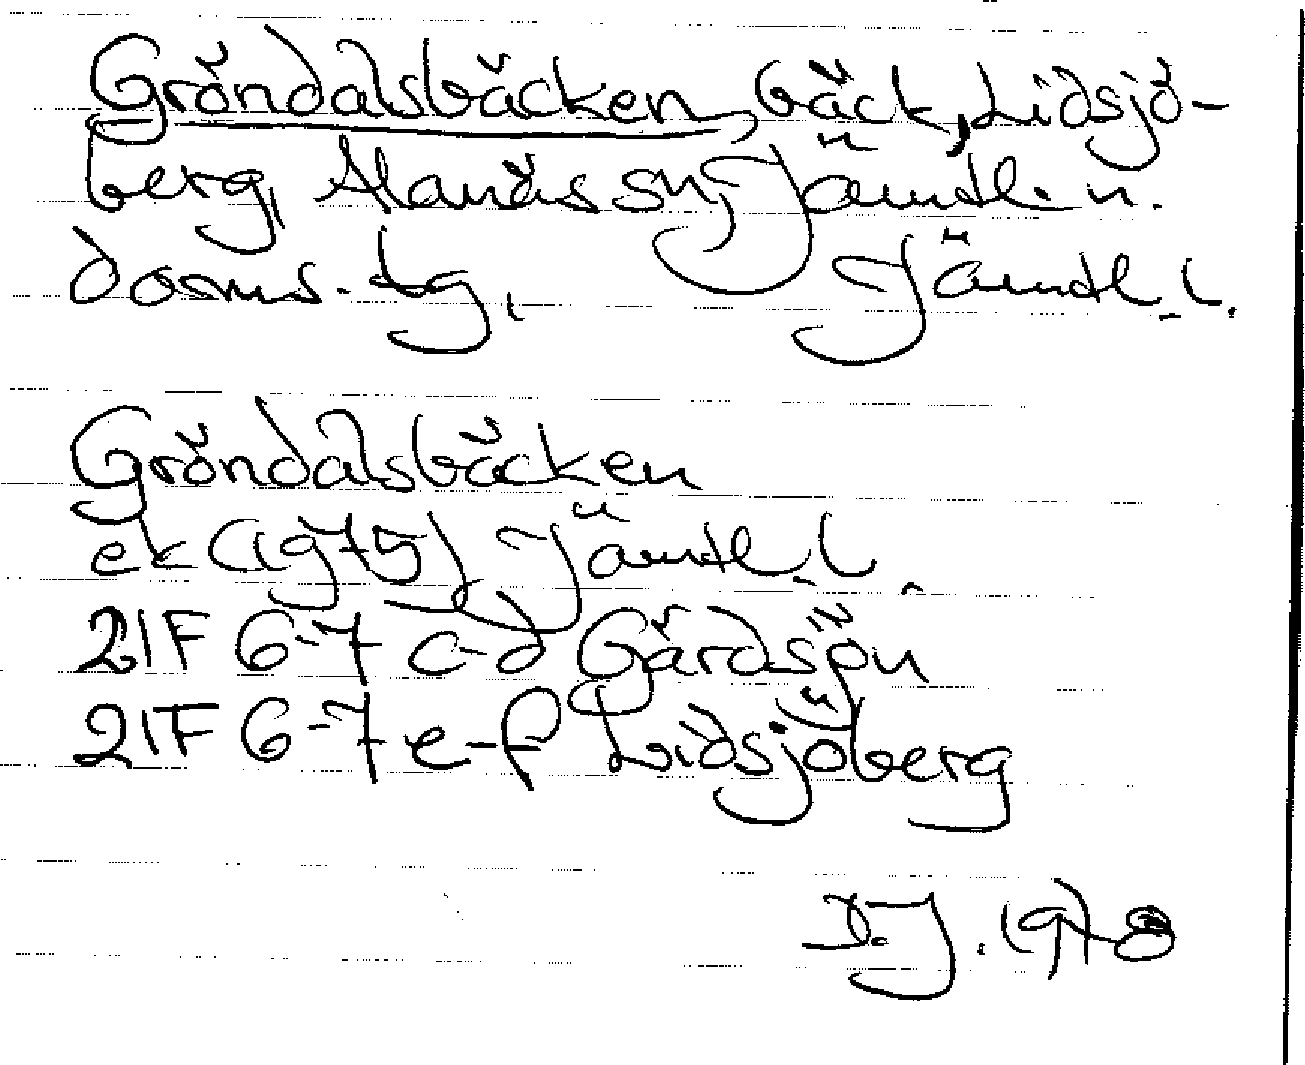 Gröndalsbäcken, bäck, Lidsjö-
berg, Alanäs sn, Jämtl. n.
doms. tg,   Jämtl. l.
Gröndalsbäcken
ek (1975) Jämtl. l.
21F 6-7 c-d Gårdsjön
21F 6-7 e-f Lidsjöberg
D.J. 1978